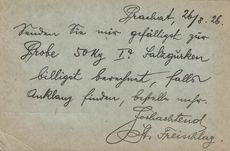 Prachat, 26/8. 26.
Senden Sie mir gefälligst zur
Probe 50 Kg Iª Salzgurken
billigst berechnet, falls
Anklang finden, bestelle mehr.
Hochachtend
Freischlag.